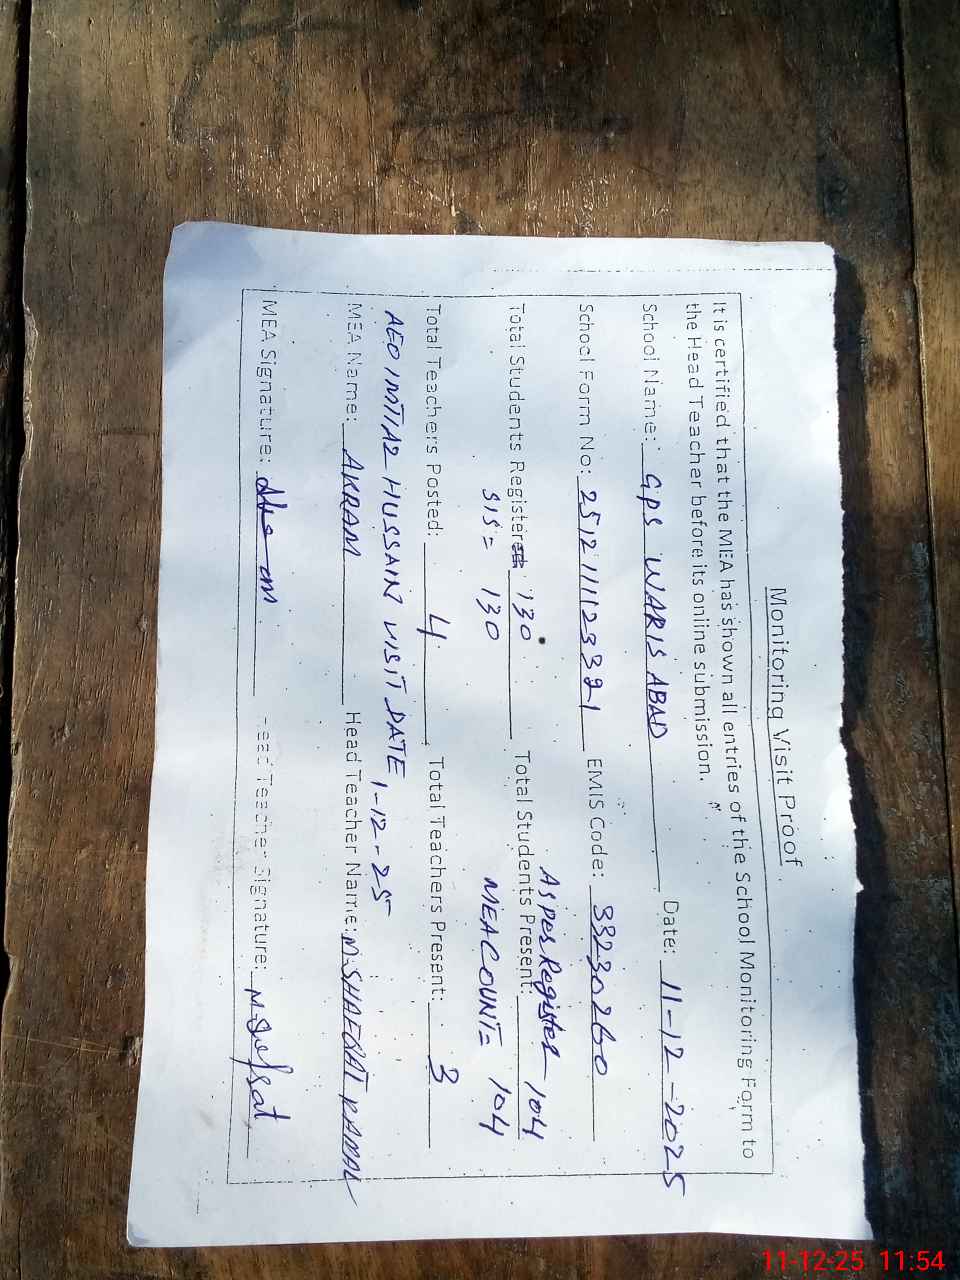 Monitoring Visit Proof
It is certified that the MEA has shown all entries of the School Monitoring Form to
the Head Teacher before its online submission.
School Name: GPS WARIS ABAD Date: 11-12-2025
School Form No: EMIS Code: 33230260
As per Register
Total Students Registered 130 Total Students Present: 104
SIS = 130 MEA COUNT = 104
Total Teachers Posted: 4 Total Teachers Present: 3
AEO IMTIAZ HUSSAIN VISIT DATE 1-12-25
MEA Name: AKRAM Head Teacher Name: M. SHAFQAT KAMAL
MEA Signature: Head Teacher Signature: M.Shafqat
11-12-25 11:54